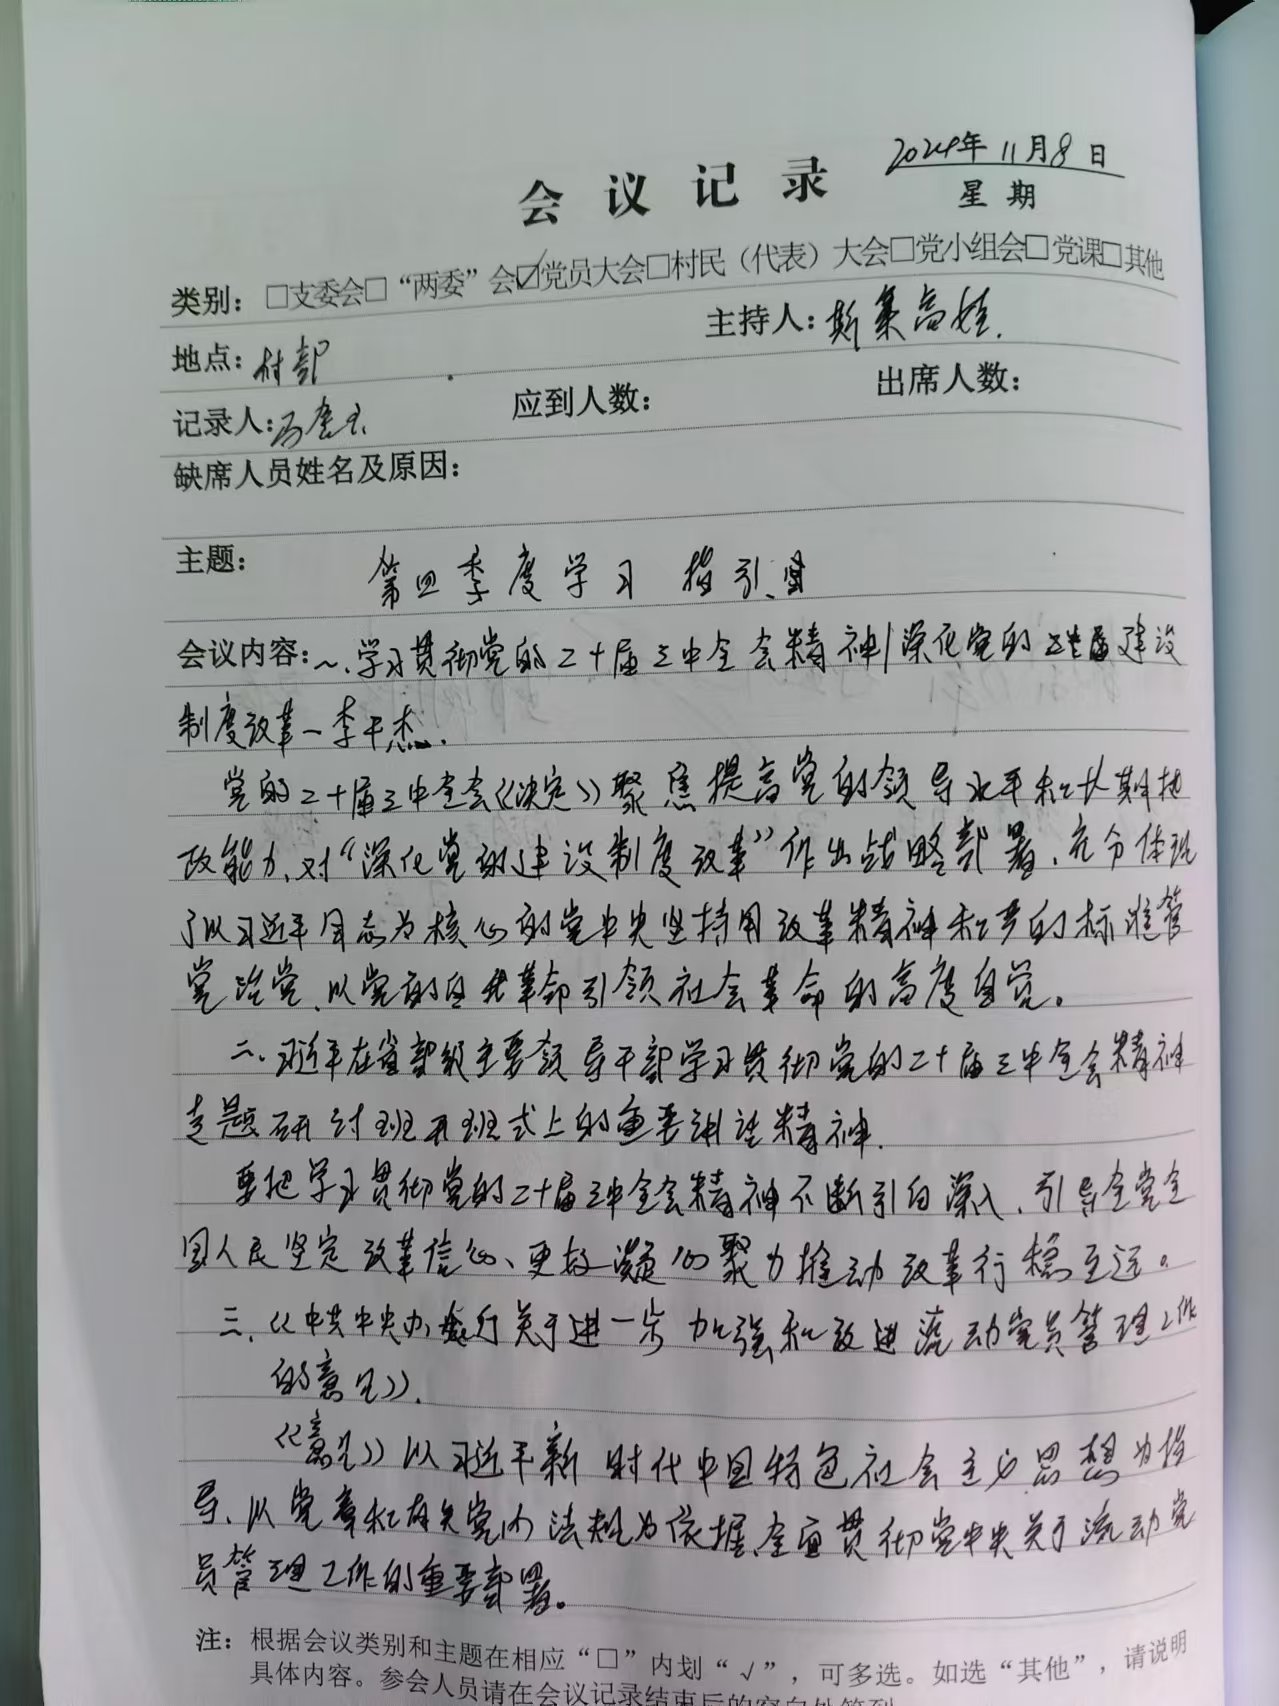 2024年11月8日
会议记录
星期
类别：□支委会□“两委”会☑党员大会□村民（代表）大会□党小组会□党课□其他
地点：村部 主持人：斯琴高娃
记录人： 应到人数： 出席人数：
缺席人员姓名及原因：
主题： 第四季度学习 指引
会议内容：一、学习贯彻党的二十届三中全会精神/深化党的建设
制度改革一李干杰.
党的二十届三中全会《决定》聚焦提高党的领导水平和长期执
政能力、对“深化党的建设制度改革”作出战略部署、充分体现
了以习近平同志为核心的党中央坚持用改革精神和严的标准管
党治党、以党的自我革命引领社会革命的高度自觉。
二、习近平在省部级主要领导干部学习贯彻党的二十届三中全会精神
专题研讨班开班式上的重要讲话精神.
要把学习贯彻党的二十届三中全会精神不断引向深入、引导全党全
国人民坚定改革信心、更好凝心聚力推动改革行稳至远。
三、《中共中央办发行关于进一步加强和改进流动党员管理工作
的意见》.
《意见》以习近平新时代中国特色社会主义思想为指
导、以党章和有关党内法规为依据、全面贯彻党中央关于流动党
员管理工作的重要部署。
注：根据会议类别和主题在相应“□”内划“√”，可多选。如选“其他”，请说明
具体内容。参会人员请在会议记录结束后的空白处签到